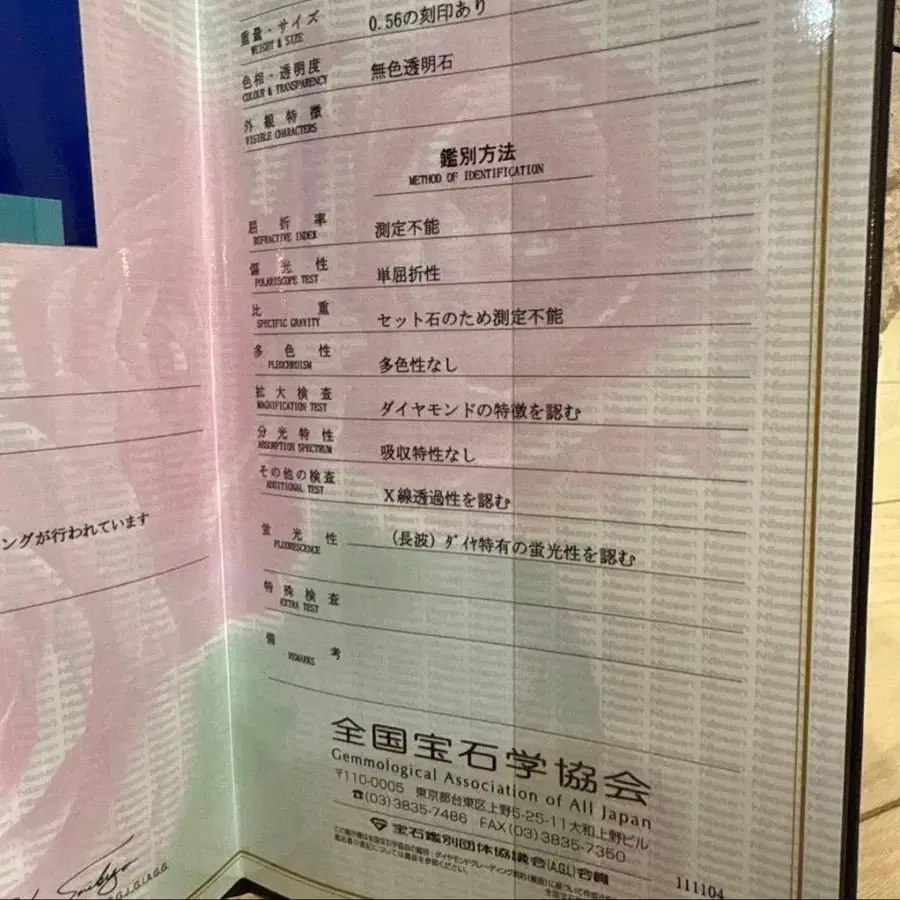 重量・サイズ 0.56の刻印あり
WEIGHT & SIZE
色相・透明度 無色透明石
COLOUR & TRANSPARENCY
外観特徴
VISIBLE CHARACTERS
鑑別方法
METHOD OF IDENTIFICATION
屈折率 測定不能
REFRACTIVE INDEX
偏光性 単屈折性
POLARISCOPE TEST
比重 セット石のため測定不能
SPECIFIC GRAVITY
多色性 多色性なし
PLEOCHROISM
拡大検査 ダイヤモンドの特徴を認む
MAGNIFICATION TEST
分光特性 吸収特性なし
ABSORPTION SPECTRUM
その他の検査 X線透過性を認む
ADDITIONAL TEST
蛍光性 (長波)ダイヤ特有の蛍光性を認む
FLUORESCENCE
特殊検査
EXTRA TEST
備考
REMARKS
ングが行われています
全国宝石学協会
Gemmological Association of All Japan
〒110-0005 東京都台東区上野5-25-11大和上野ビル
☎(03)3835-7486 FAX(03)3835-7350
宝石鑑別団体協議会(AGL)会員
111104